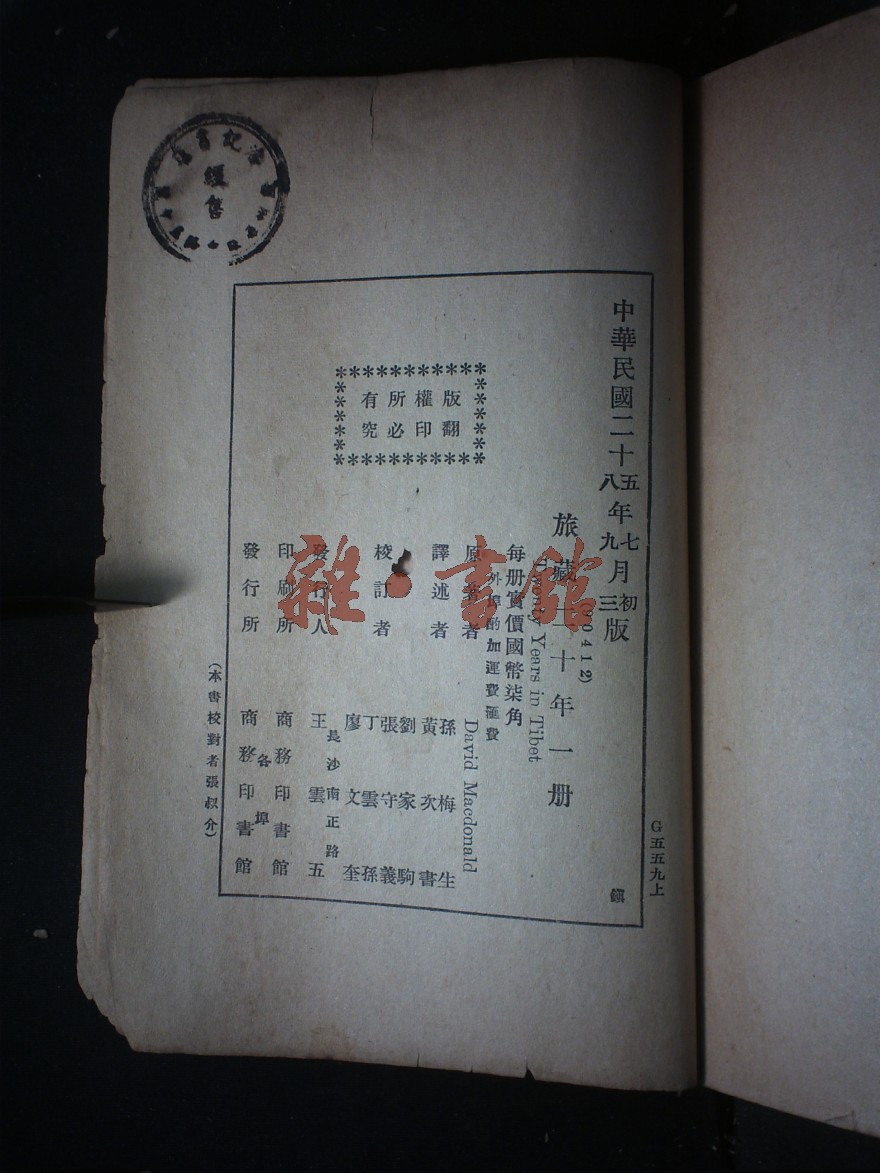 中華民國二十五年七月初版
八九三
旅藏二十年一册
(70412)
Twenty Years in Tibet
每册實價國幣柒角
外埠酌加運費匯費
原著者 David Macdonald
譯述者 孫梅生 黃次書
校訂者 劉家駒 張守義 丁雲孫 廖文奎
發行人 王雲五
長沙南正路
印刷所 商務印書館
發行所 商務印書館
各埠
版權所有
翻印必究
(本書校對者張叔介)
G五五九上
鎭
經售
雜·書館